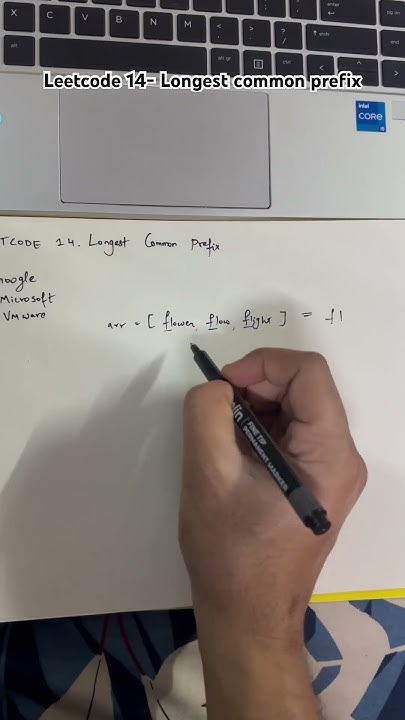 Leetcode 14- Longest common prefix
TCODE 14. Longest Common Prefix
oogle
Microsoft
VMware
arr = [ flower, flow, flight ] = fl
intel
CORE
FINE TIP
PERMANENT MARKER
alt
X
C
V
B
N
M
enter
shift
alt gr
ctrl
pg up
pg dn